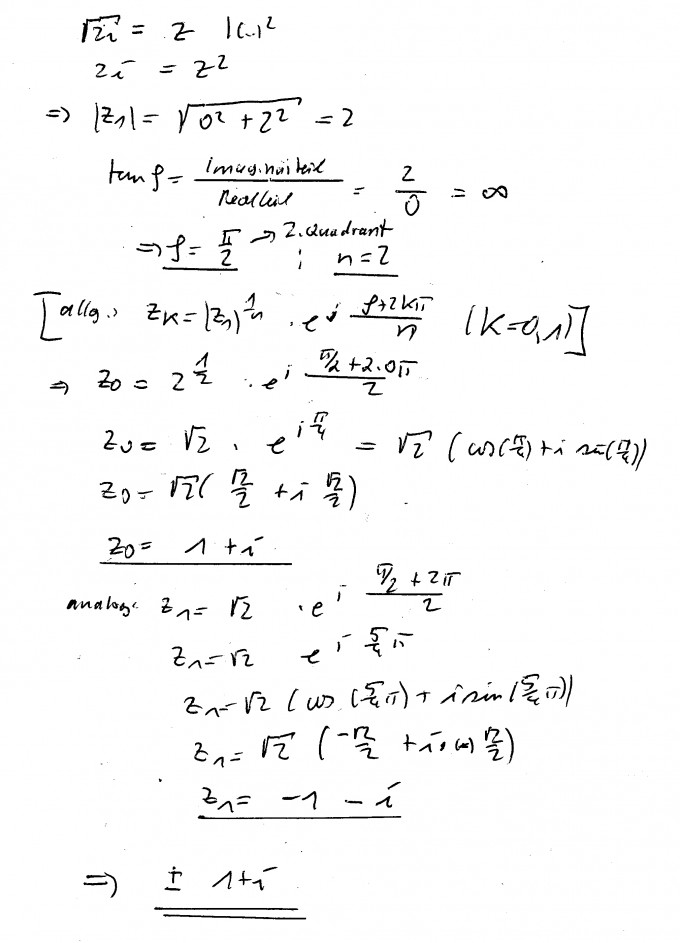 √2i = z |(..)²
2i = z²
=> |z₁| = √(0² + 2²) = 2
tan φ = Imaginärteil / Realteil = 2/0 = ∞
=> φ = π/2 → 2. Quadrant ; n = 2
[allg.: z_K = |z₁|^(1/n) · e^(i (φ+2kπ)/n) (K=0,1)]
=> z₀ = 2^(1/2) · e^(i (π/2 + 2·0π)/2)
z₀ = √2 · e^(i π/4) = √2 (cos(π/4) + i sin(π/4))
z₀ = √2 ( √2/2 + i √2/2 )
z₀ = 1 + i
analog: z₁ = √2 · e^(i (π/2 + 2π)/2)
z₁ = √2 e^(i 5/4 π)
z₁ = √2 (cos (5/4 π) + i sin (5/4 π))
z₁ = √2 ( -√2/2 + i · (-) √2/2 )
z₁ = -1 - i
=> ± 1+i